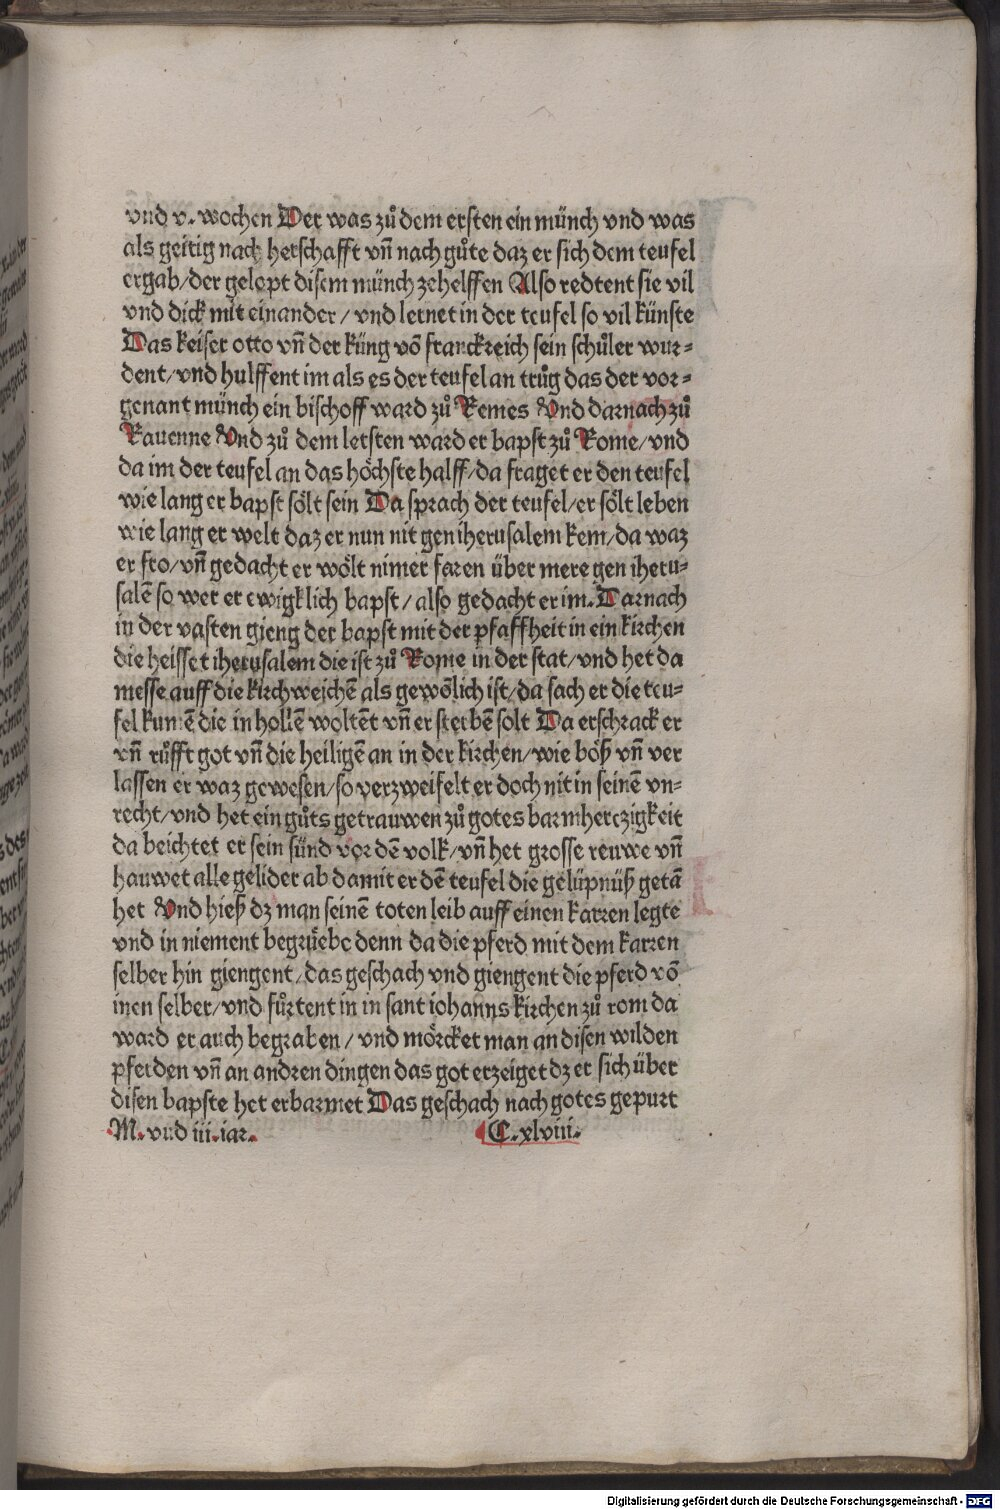 vnd v. wochen Der was zů dem ersten ein münch vnd was
als geitig nach herschafft vn̄ nach gůte daz er sich dem teufel
ergab/der gelopt disem münch zehelffen Also redtent sie vil
vnd dick mit einander/vnd lernet in der teufel so vil künste
Das keiser otto vn̄ der küng vō franckreich sein schůler wur⸗
dent/vnd hulffent im als es der teufel an trůg das der vor⸗
genant münch ein bischoff ward zů Remes Vnd darnach zů
Rauenne Vnd zů dem letsten ward er bapst zů Rome/vnd
da im der teufel an das höchste halff/da fraget er den teufel
wie lang er bapst sölt sein Da sprach der teufel/er sölt leben
wie lang er welt daz er nun nit gen iherusalem kem/da waz
er fro/vn̄ gedacht er wölt nimer faren über mere gen iheru⸗
salē so wer er ewigklich bapst/also gedacht er im. Darnach
in der vasten gieng der bapst mit der pfaffheit in ein kirchen
die heisset iherusalem die ist zů Rome in der stat/vnd het da
messe auff die kirchweichē als gewōlich ist/da sach er die teu⸗
fel kumē die in hollē woltēt vn̄ er sterbē solt Da erschrack er
vn̄ růfft got vn̄ die heiligē an in der kirchen/wie böß vn̄ ver
lassen er waz gewesen/so verzweifelt er doch nit in seinē vn⸗
recht/vnd het ein gůts getrauwen zů gotes barmherczigkeit
da beichtet er sein sünd vor dē volk/vn̄ het grosse reuwe vn̄
hauwet alle gelider ab damit er dē teufel die gelüpnüß getā
het Vnd hieß dz man seinē toten leib auff einen karren legte
vnd in niement begrůebe denn da die pferd mit dem karren
selber hin giengent/das geschach vnd giengent die pferd vō
inen selber/vnd fůrtent in in sant iohanns kirchen zů rom da
ward er auch begraben/vnd mörcket man an disen wilden
pferden vn̄ an andren dingen das got erzeiget dz er sich über
disen bapste het erbarmet Das geschach nach gotes gepurt
M. vnd iii. iar. C. xlviii.
Digitalisierung gefördert durch die Deutsche Forschungsgemeinschaft - DFG